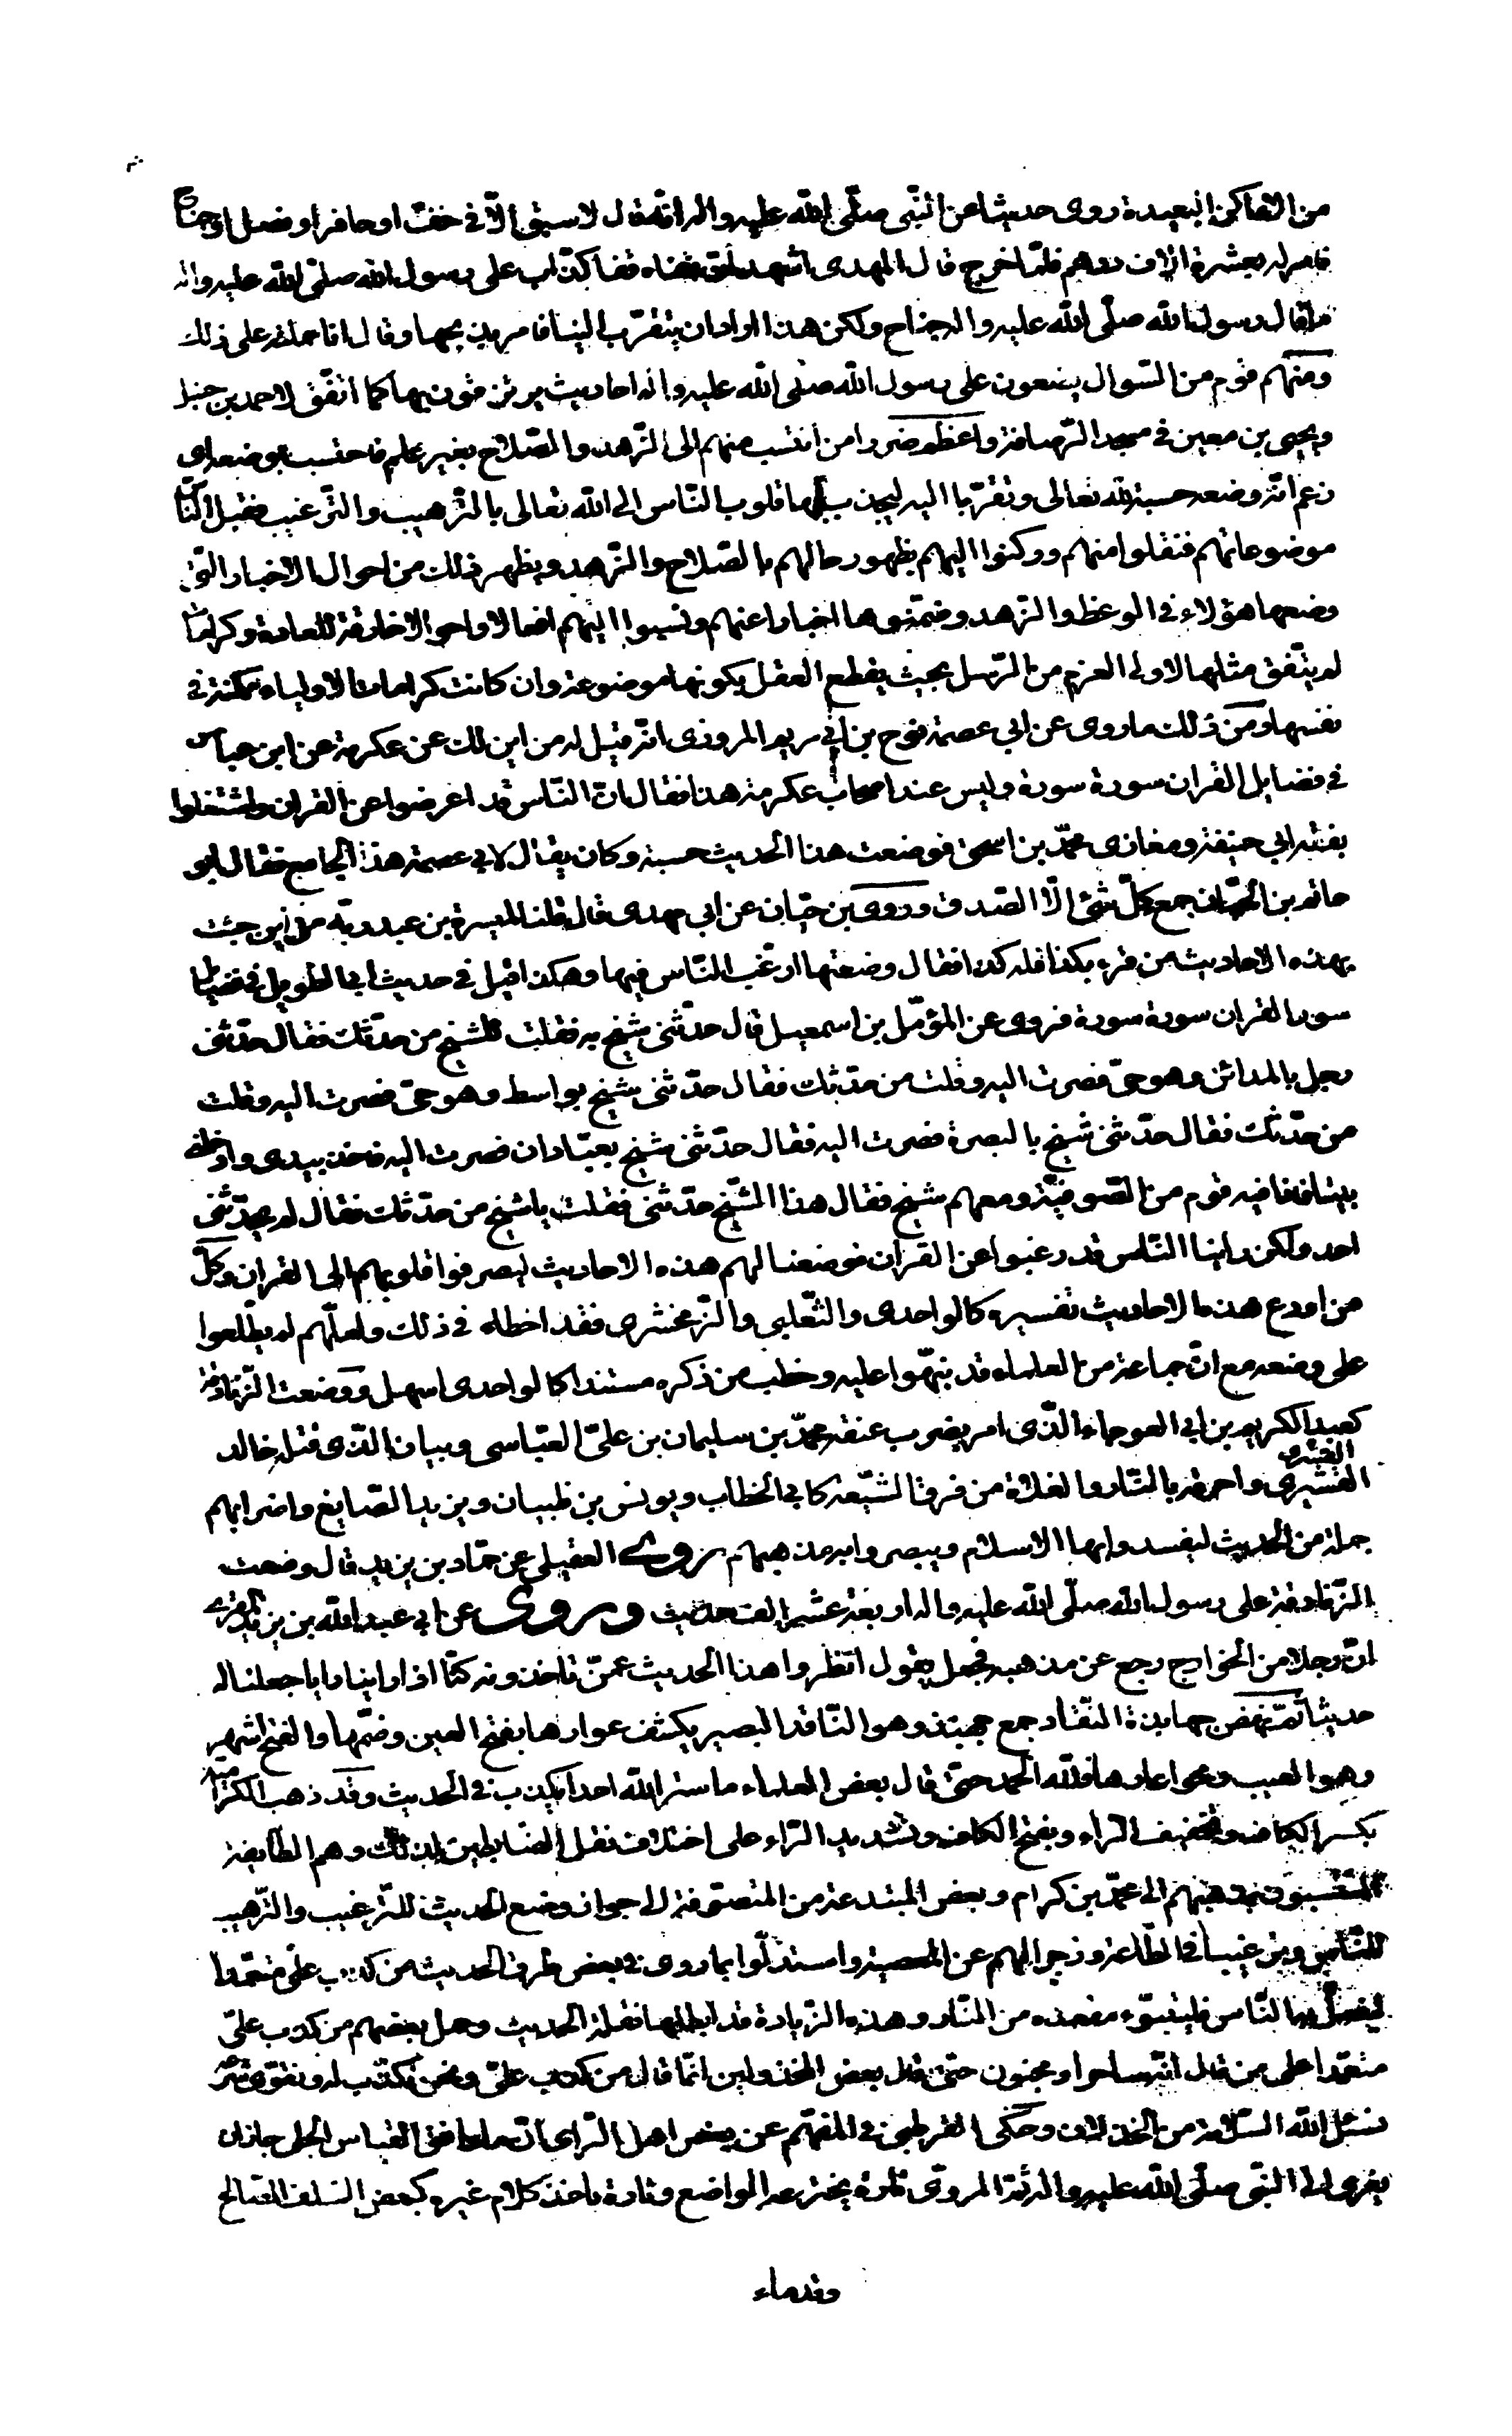 من الاماكن البعيدة روى حديثا عن النبي صلّى الله عليه واله انه قال لا سبق الّا في خفّ او حافر او نصل او جناح
فامر له بعشرة الاف درهم فلمّا خرج قال المهدى اشهد ان قفاه قفا كذّاب على رسول الله صلّى الله عليه واله
ما قال رسول الله صلّى الله عليه واله جناح ولكن هذا اراد ان يتقرّب الينا فامر بذبحها وقال انا حملته على ذلك
ومنهم قوم من السّوال يضعون على رسول الله صلّى الله عليه واله احاديث يرتزقون بها كما اتّفق لاحمد بن حنبل
ويحيى بن معين في مسجد الرّصافة واعظم ضررا من انتسب منهم الى الزّهد والصّلاح بغير علم فاحتسب بوضعه اى
زعم انّه وضعه حسبة لله تعالى وتقرّبا اليه ليجذب بها قلوب النّاس الى الله تعالى بالتّرهيب والتّرغيب فقبل النّاس
موضوعاتهم فنقلوا منهم وركنوا اليهم بظهور حالهم بالصّلاح والزّهد ويظهر ذلك من احوال الاخبار الّتى
وضعها هؤلاء في الوعظ والزّهد وضمّنوها اخبارا عنهم ونسبوا اليهم افعالا واحوالا خارقة للعادة وكرامات
لم يتّفق مثلها لاولى العزم من الرّسل بحيث يقطع العقل بكونها موضوعة وان كانت كرامات الاولياء ممكنة في
نفسها ومن ذلك ما روى عن ابي عصمة نوح بن ابي مريم المروزى انّه قيل له من اين لك عن عكرمة عن ابن عباس
في فضايل القران سورة سورة وليس عند اصحاب عكرمة هذا فقال انّ النّاس قد اعرضوا عن القران واشتغلوا
بفقه ابي حنيفة ومغازى محمّد بن اسحق فوضعت هذا الحديث حسبة وكان يقال لابي عصمة هذا الجامع فقال ابو
حاتم بن حبّان جمع كلّ شئ الّا الصّدق وروى بن حبّان عن ابي مهدى قال قلت لميسرة بن عبد ربّه من اين جئت
بهذه الاحاديث من قرء بكذا فله كذا فقال وضعتها ارغّب النّاس فيها وهكذا قيل في حديث ابي الطويل في فضايل
سور القران سورة سورة فروى عن المؤمّل بن اسمعيل قال حدّثنى شيخ به فقلت للشيخ من حدّثك فقال حدّثنى
رجل بالمدائن وهو حىّ فصرت اليه وقلت من حدّثك فقال حدّثنى شيخ بواسط وهو حىّ فصرت اليه وقلت
من حدّثك فقال حدّثنى شيخ بالبصرة فصرت اليه فقال حدّثنى شيخ بعبّادان فصرت اليه فاخذ بيدى وادخلنى
بيتا فاذا فيه قوم من الصّوفيّة ومعهم شيخ فقال هذا الشّيخ حدّثنى فقلت يا شيخ من حدّثك فقال لم يحدّثنى
احد ولكن راينا النّاس قد رغبوا عن القران فوضعنا لهم هذه الاحاديث ليصرفوا قلوبهم الى القران وكلّ
من اودع هذه الاحاديث تفسيره كالواحدى والثّعلبى والزّمخشرى فقد اخطاء في ذلك ولعلّهم لم يطّلعوا
على وضعه مع انّ جماعة من العلماء قد نبّهوا عليه وخطب من ذكره مسندا كالواحدى اسهل ووضعت الزّنادقة
كعبد الكريم بن ابي العوجاء الّذى امر بضرب عنقه محمّد بن سليمان بن علىّ العبّاسى وبيان الّذى قتله خالد
القسرى
القشيرى واحرقه بالنّار والغلاة من فرق الشّيعة كابي الخطاب ويونس بن ظبيان ويزيد الصّايغ واضرابهم
جملة من الحديث ليفسدوا بها الاسلام وينصروا به مذهبهم روى العقيلى عن حمّاد بن زيد قال وضعت
الزّنادقة على رسول الله صلّى الله عليه واله اربعة عشر الف حديث وروى عن ابي عبد الله بن يزيد المقرى
انّ رجلا من الخوارج رجع عن مذهبه فجعل يقول انظروا هذا الحديث عمّن تاخذونه كنّا اذا راينا رايا جعلنا له
حديثا ثمّ نهض جهابذة النّقّاد جمع جهبذ وهو النّاقد البصير بكشف عوارها بفتح العين وضمّها والفتح اشهر
وهو العيب ومحوا عارها فلله الحمد حتّى قال بعض العلماء ما ستر الله احدا يكذب في الحديث وقد ذهب الكرّاميّة
بكسر الكاف وتخفيف الراء وبفتح الكاف وتشديد الرّاء على اختلاف نقل الضّابطين لذلك وهم الطايفة
المنتسبون بمذهبهم الى محمّد بن كرام وبعض المبتدعة من المتصوّفة الى جواز وضع الحديث للتّرغيب والتّرهيب
للنّاس ترغيبا في الطّاعة وزجرا لهم عن المعصية واستدلّوا بما روى في بعض طرق الحديث من كذب علىّ متعمّدا
ليضلّ به النّاس فليتبوّء مقعده من النّار وهذه الزّيادة قد ابطلها نقلة الحديث وحمل بعضهم من كذب علىّ
متعمّدا على من قال انّه ساحر او مجنون حتّى قال بعض المخذولين انّما قال من كذب علىّ ونحن نكذب له ونقوّى شرعه
نسئل الله السّلامة من الخذلان وحكى القرطبى في المفهم عن بعض اهل الرّاى انّ ما وافق القياس الجلى جاز ان
يعزى الى النّبى صلّى الله عليه واله ثمّ المروىّ تارة يخترعه الواضع وتارة ياخذ كلام غيره كبعض السّلف الصّالح
وقدماء